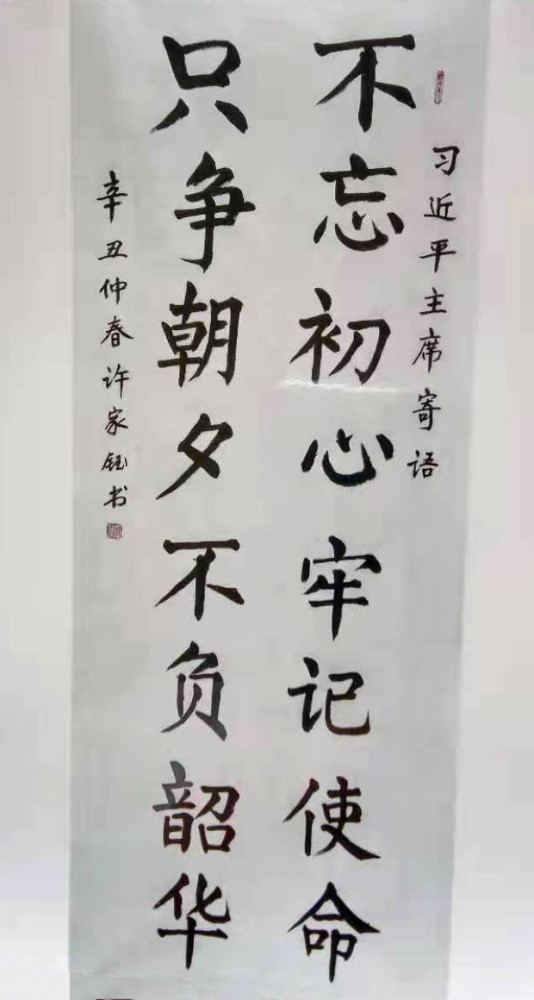 习近平主席寄语
不忘初心牢记使命
只争朝夕不负韶华
辛丑仲春许家钰书